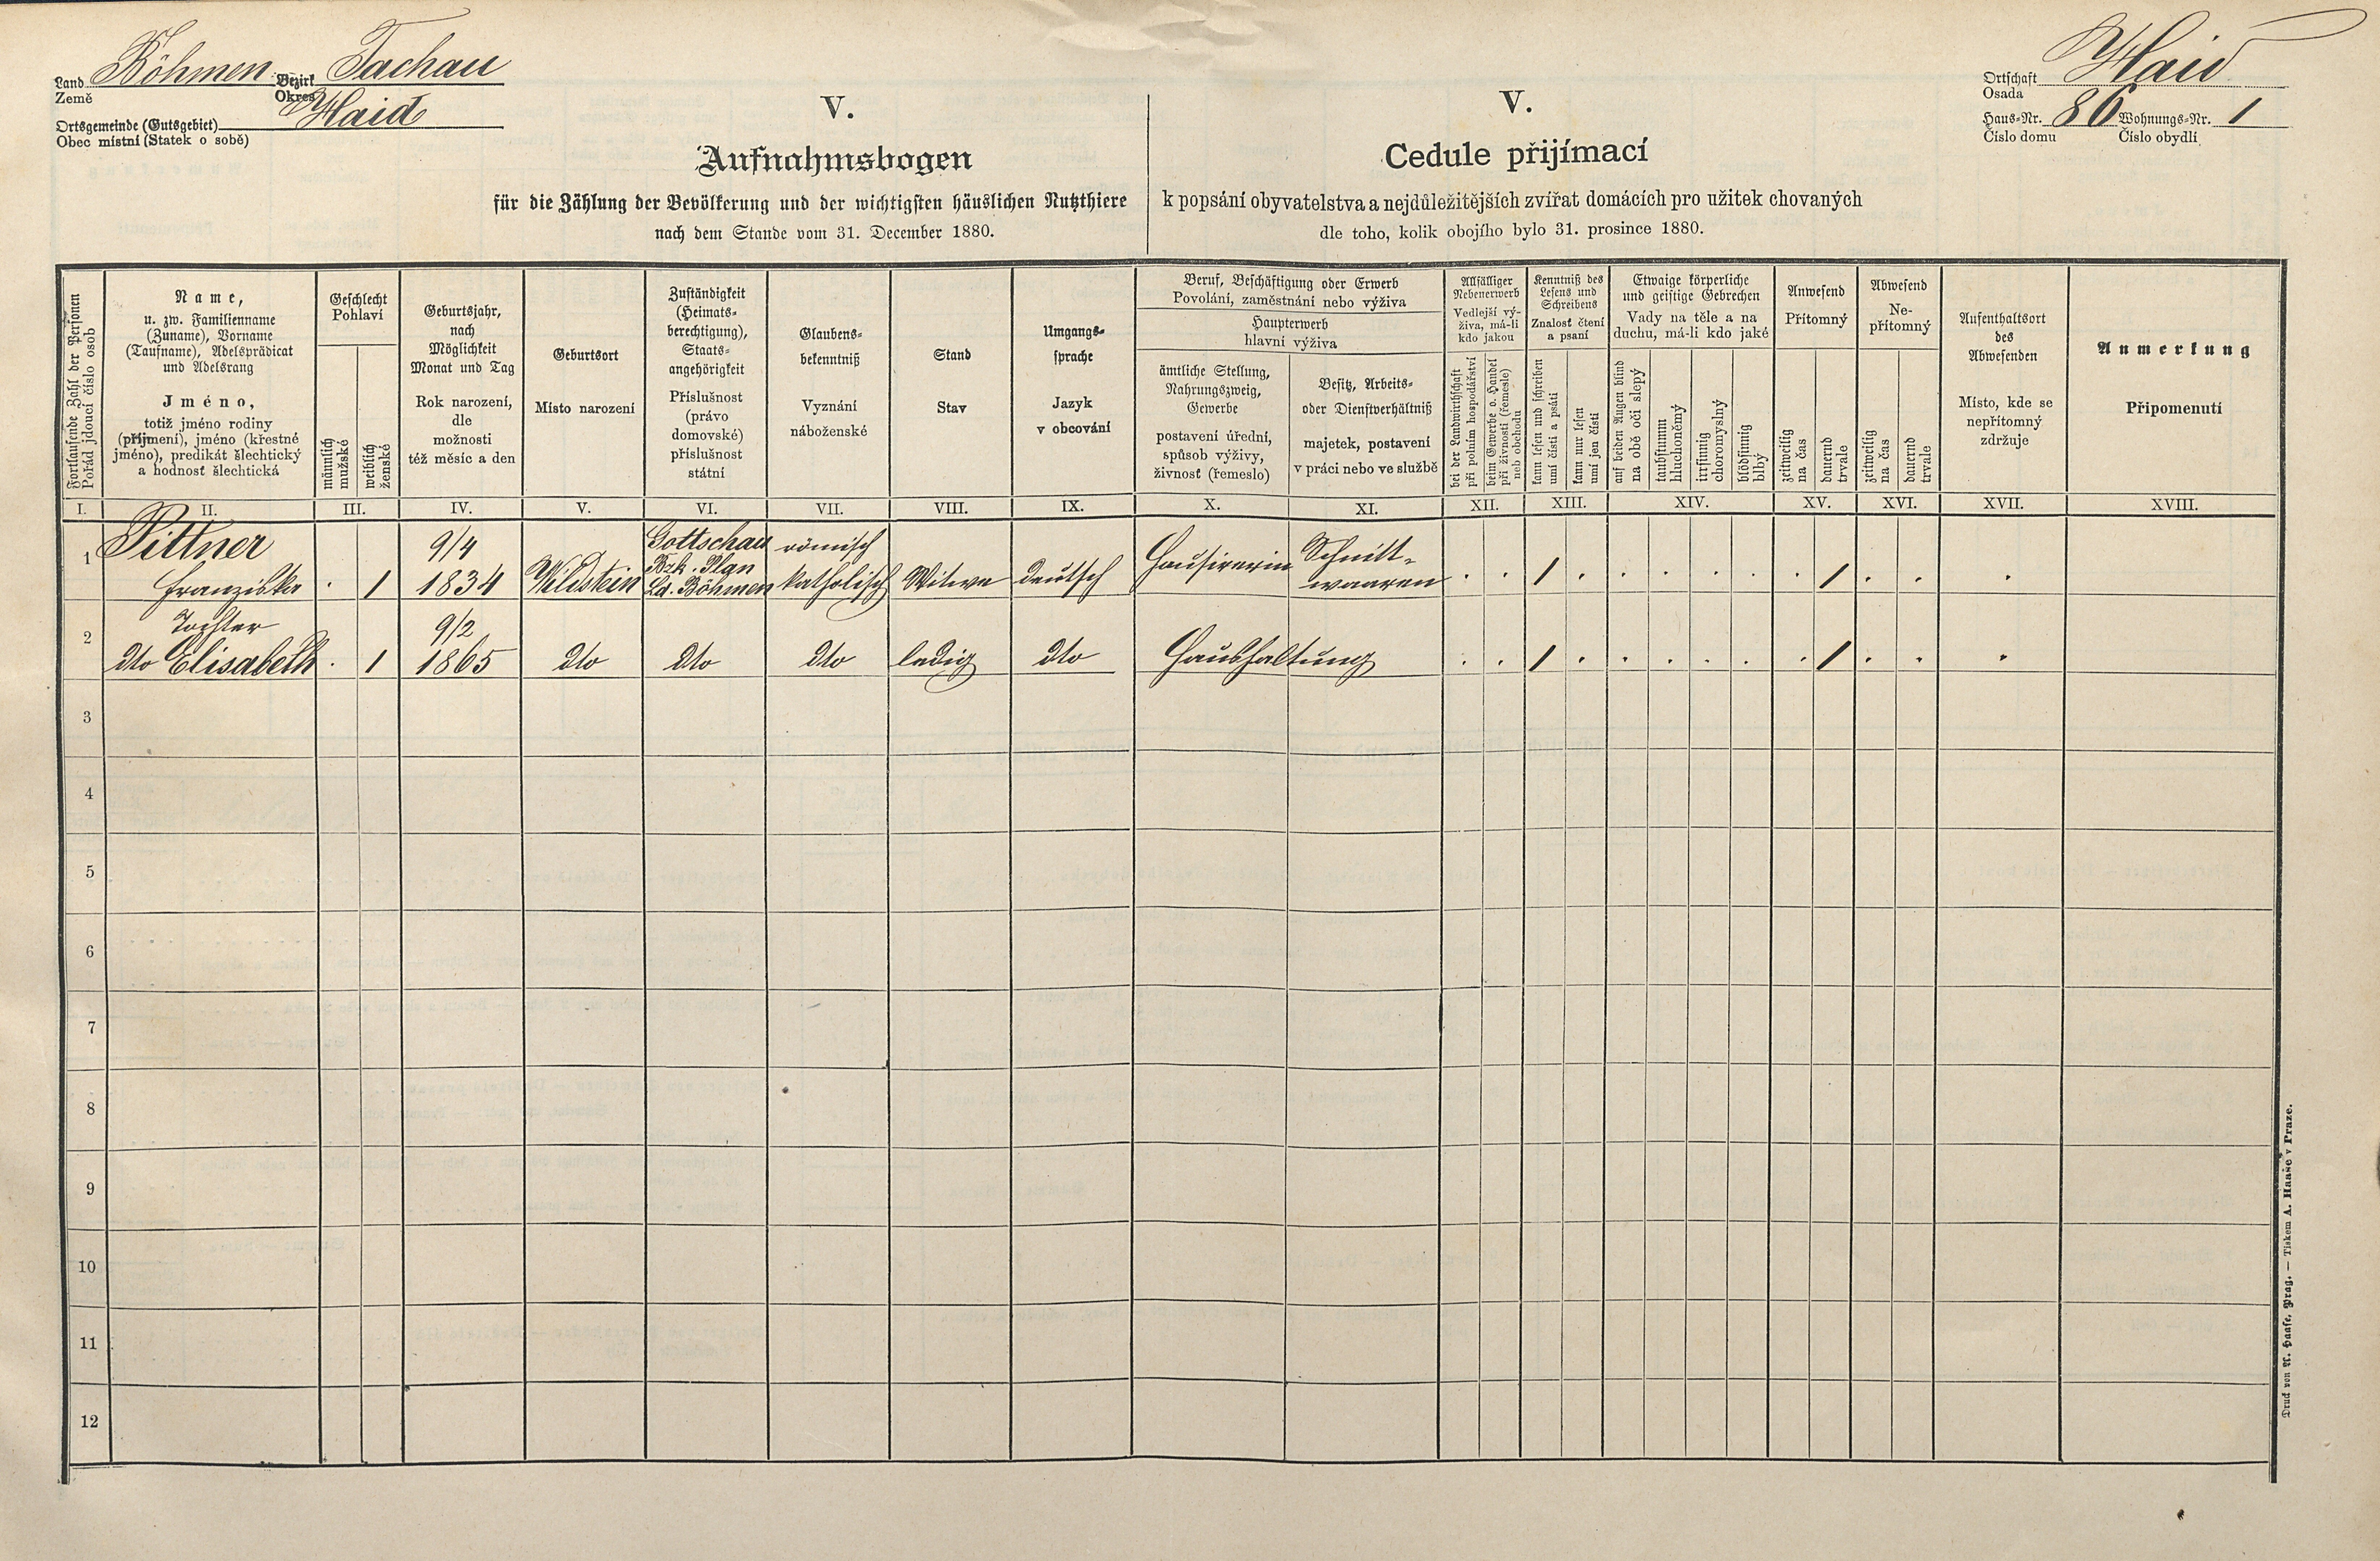 Land Böhmen Bezirk Tachau
Země Okres
Ortsgemeinde (Gutsgebiet) Haid
Obec místní (Statek o sobě)
Ortschaft Haid
Osada
Haus-Nr. 86 Wohnungs-Nr. 1
Číslo domu Číslo obydlí
V.
Aufnahmsbogen
für die Zählung der Bevölkerung und der wichtigsten häuslichen Nutzthiere
nach dem Stande vom 31. December 1880.
V.
Cedule přijímací
k popsání obyvatelstva a nejdůležitějších zvířat domácích pro užitek chovaných
dle toho, kolik obojího bylo 31. prosince 1880.
Fortlaufende Zahl der Personen
Pořád jdoucí číslo osob
Name,
u. zw. Familienname
(Zuname), Vorname
(Taufname), Adelsprädicat
und Adelsrang
Jméno,
totiž jméno rodiny
(příjmení), jméno (křestné
jméno), predikát šlechtický
a hodnosť šlechtická
Geschlecht
Pohlaví
männlich
mužské
weiblich
ženské
Geburtsjahr,
nach
Möglichkeit
Monat und Tag
Rok narození,
dle
možnosti
též měsíc a den
Geburtsort
Místo narození
Zuständigkeit
(Heimats-
berechtigung),
Staats-
angehörigkeit
Příslušnost
(právo
domovské)
příslušnost
státní
Glaubens-
bekenntniß
Vyznání
náboženské
Stand
Stav
Umgangs-
sprache
Jazyk
v obcování
Beruf, Beschäftigung oder Erwerb
Povolání, zaměstnání nebo výživa
Haupterwerb
hlavní výživa
ämtliche Stellung,
Nahrungszweig,
Gewerbe
postavení úřední,
spůsob výživy,
živnosť (řemeslo)
Besitz, Arbeits-
oder Dienstverhältniß
majetek, postavení
v práci nebo ve službě
Allfälliger
Nebenerwerb
Vedlejší vý-
živa, má-li
kdo jakou
bei der Landwirthschaft
při polním hospodářství
beim Gewerbe o. Handel
při živnosti (řemesle)
neb obchodu
Kenntniß des
Lesens und
Schreibens
Znalosť čtení
a psaní
kann lesen und schreiben
umí čísti a psáti
kann nur lesen
umí jen čísti
Etwaige körperliche
und geistige Gebrechen
Vady na těle a na
duchu, má-li kdo jaké
auf beiden Augen blind
na obě oči slepý
taubstumm
hluchoněmý
irrsinnig
choromyslný
blödsinnig
blbý
Anwesend
Přítomný
zeitweilig
na čas
dauernd
trvale
Abwesend
Ne-
přítomný
zeitweilig
na čas
dauernd
trvale
Aufenthaltsort
des
Abwesenden
Místo, kde se
nepřítomný
zdržuje
Anmerkung
Připomenutí
I. II. III. IV. V. VI. VII. VIII. IX. X. XI. XII. XIII. XIV. XV. XVI. XVII. XVIII.
Pittner 9/4 Gottschau römisch Schnitt-
1 Bzk. Plan Hausirerin
Franziska . 1 1834 Wildstein Ld. Böhmen katholisch Witwe deutsch waaren . . 1 . . . . . . 1 . . .
Tochter 9/2
2 dto Elisabeth . 1 1865 dto dto dto ledig dto Haushaltung . . 1 . . . . . . 1 . . .
3
4
5
6
7
8
9
10
11
12
Druck von A. Haase, Prag. — Tiskem A. Haaše v Praze.